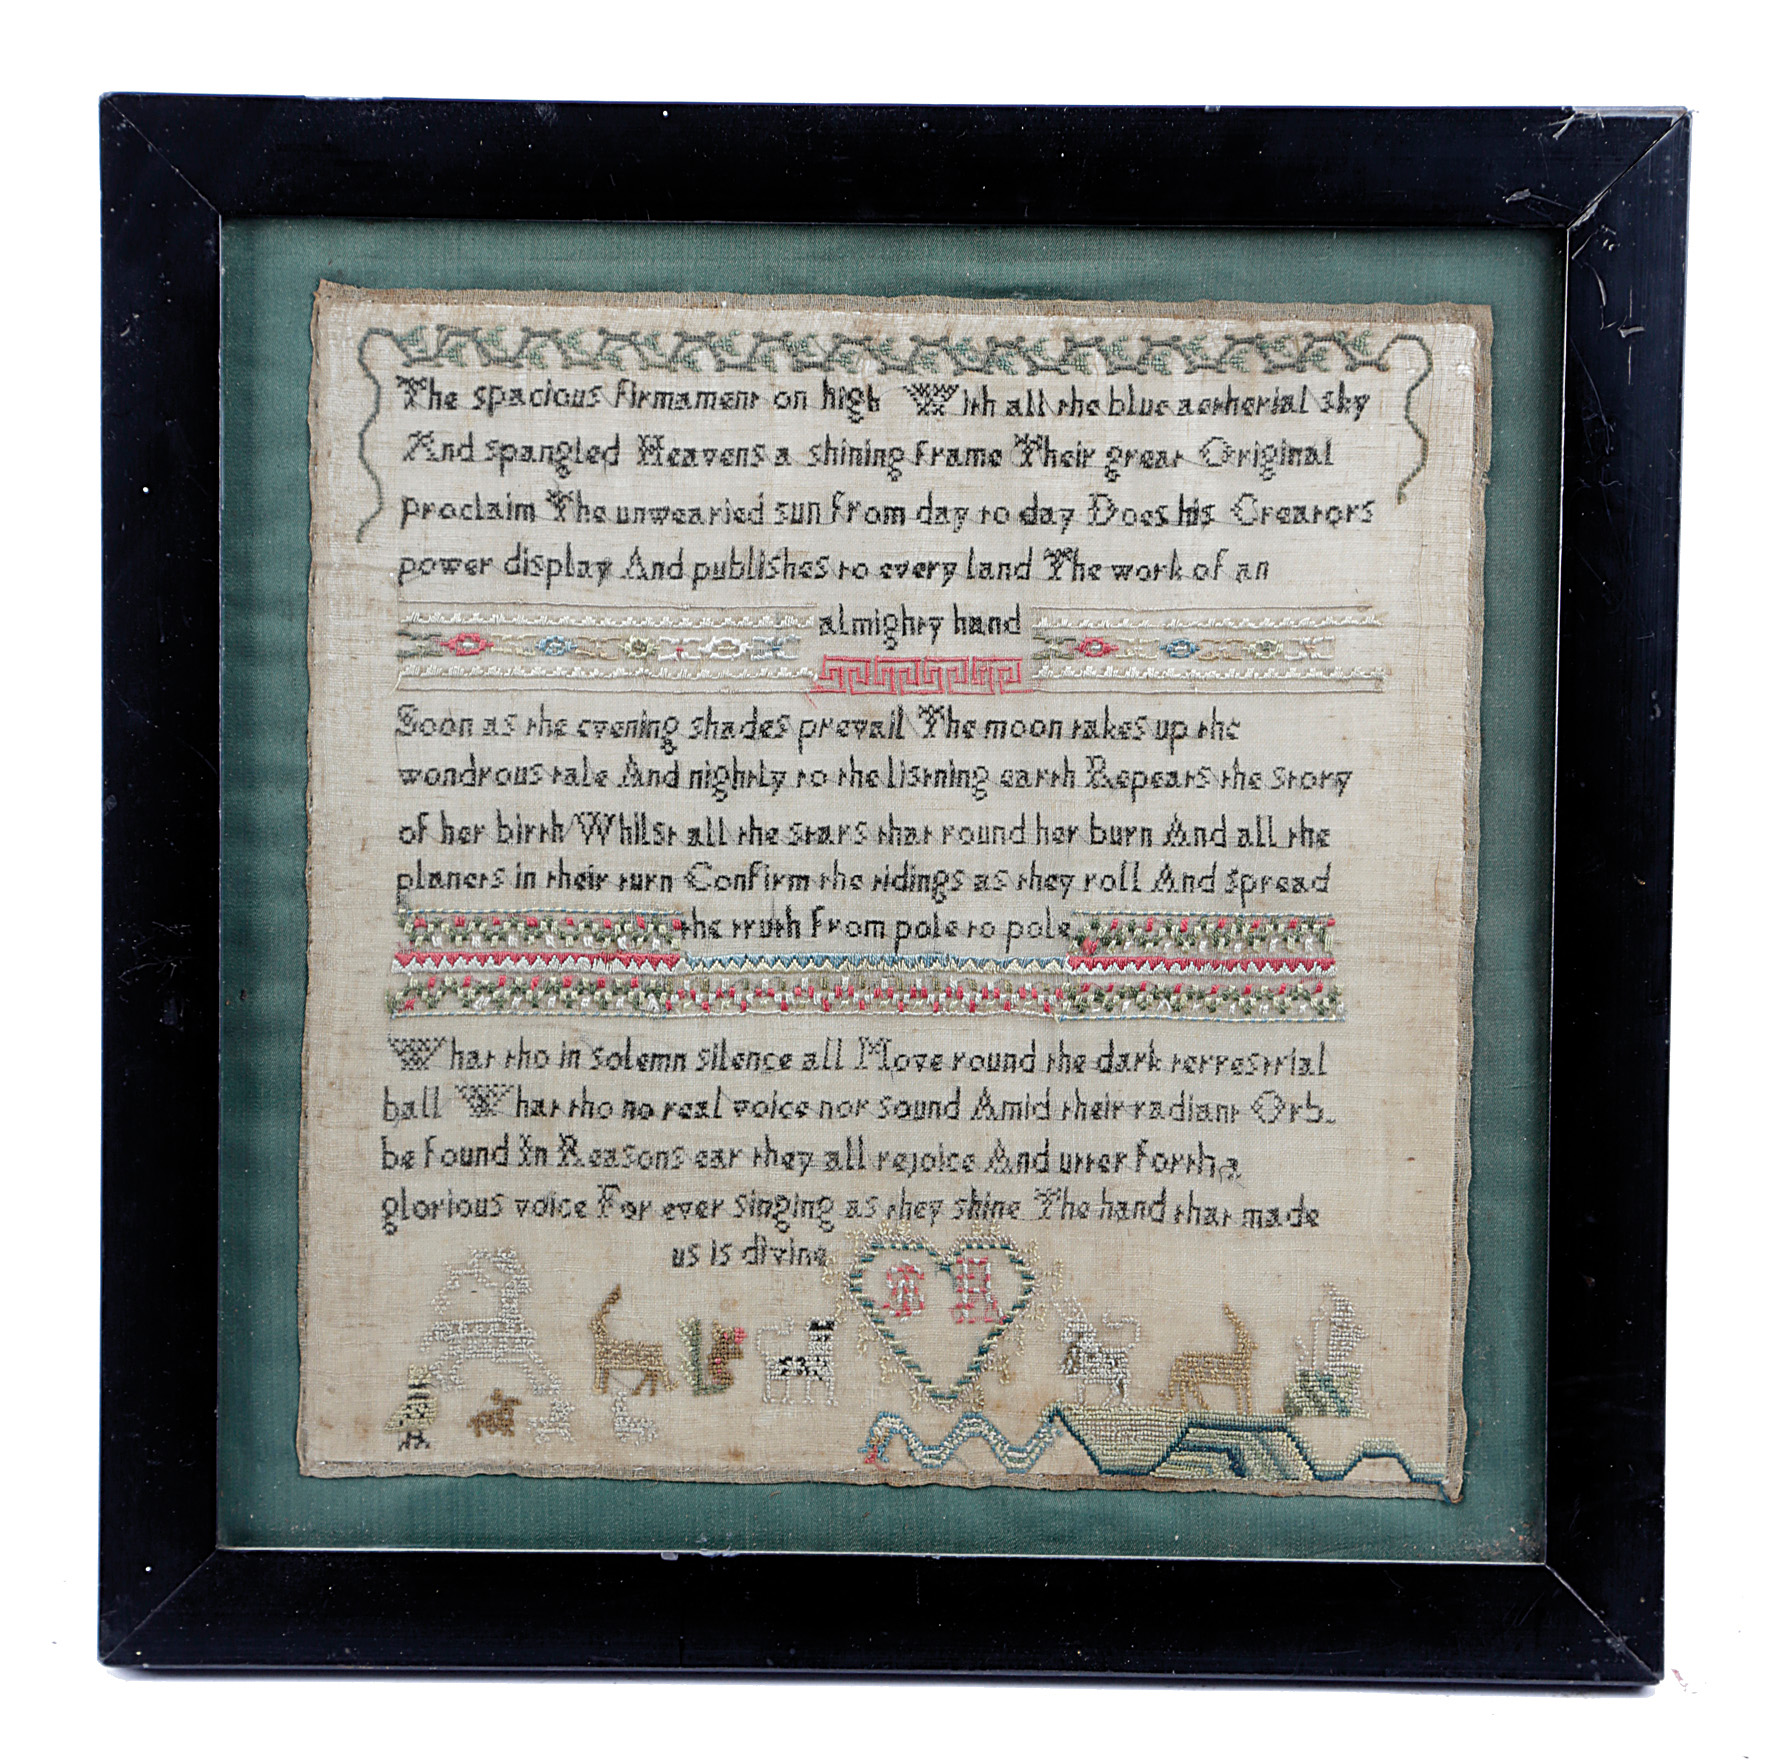 The spacious firmament on high With all the blue aetherial sky
And spangled Heavens a shining frame Their great Original
proclaim The unwearied sun from day to day Does his Creators
power display And publishes to every land The work of an
almighty hand
Soon as the evening shades prevail The moon takes up the
wondrous tale And nightly to the listning earth Repeats the story
of her birth Whilst all the stars that round her burn And all the
planets in their turn Confirm the tidings as they roll And spread
the truth from pole to pole
What tho in solemn silence all Move round the dark terrestrial
ball What tho no real voice nor sound Amid their radiant Orb
be found In Reasons ear they all rejoice And utter forth a
glorious voice For ever singing as they shine The hand that made
us is divine